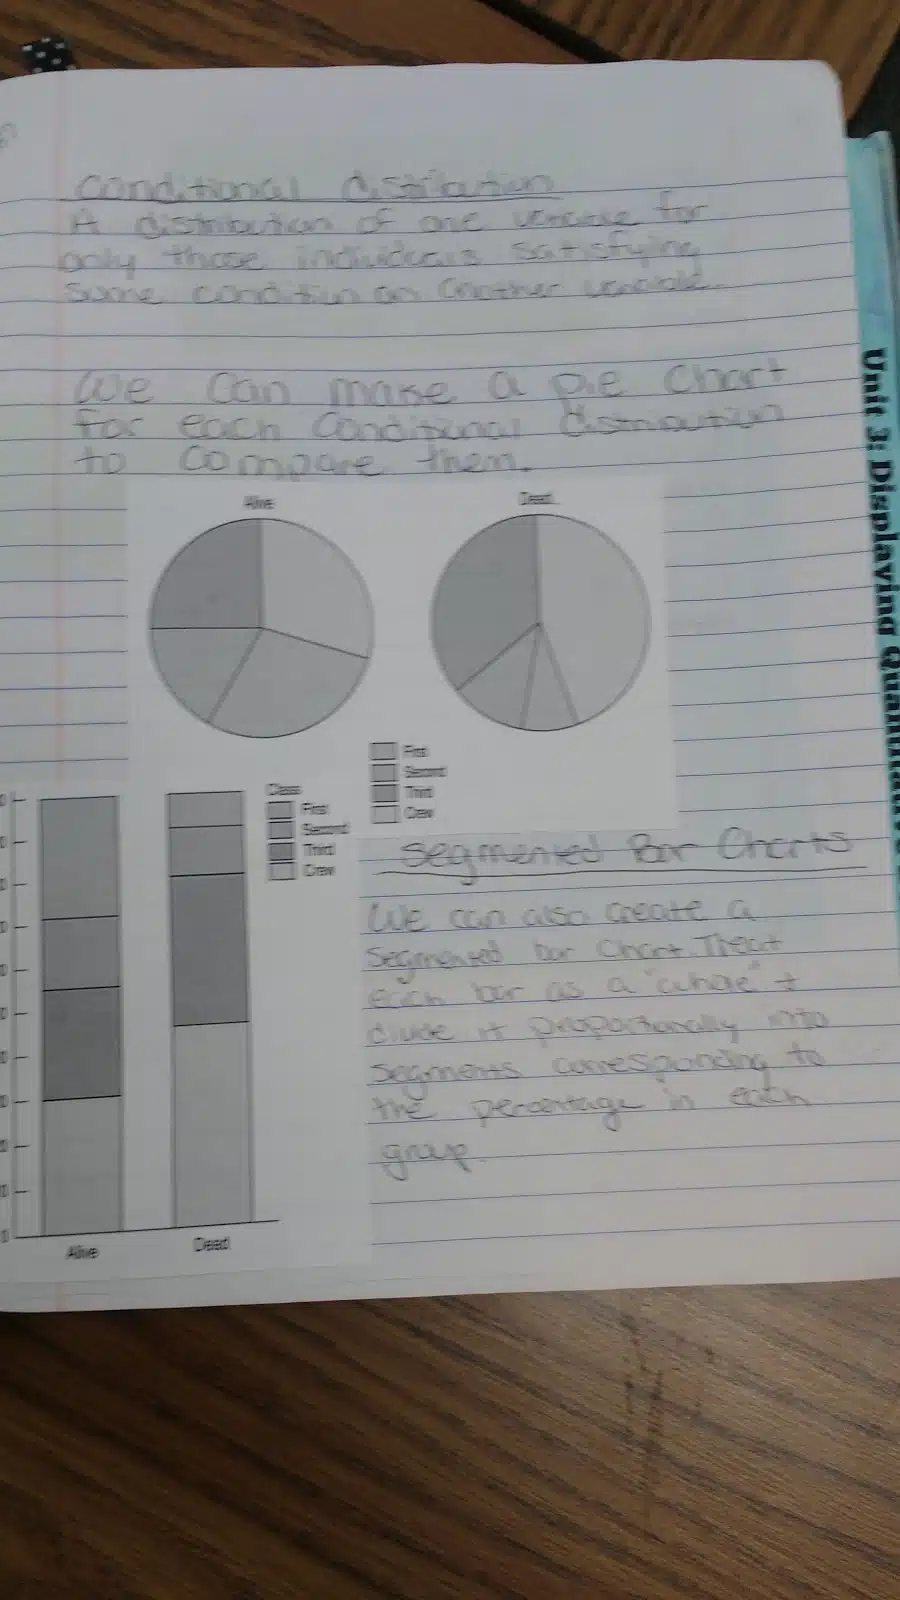 Conditional distribution
A distribution of one variable for
only those individuals satisfying
some condition on another variable.
We can make a pie chart
for each conditional distribution
to compare them.
Alive
Dead
First
Second
Third
Crew
Class
First
Second
Third
Crew
Alive
Dead
Segmented Bar Charts
We can also create a
segmented bar chart. Treat
each bar as a "whole" +
divide it proportionally into
segments corresponding to
the percentage in each
group.
Unit 3: Displaying